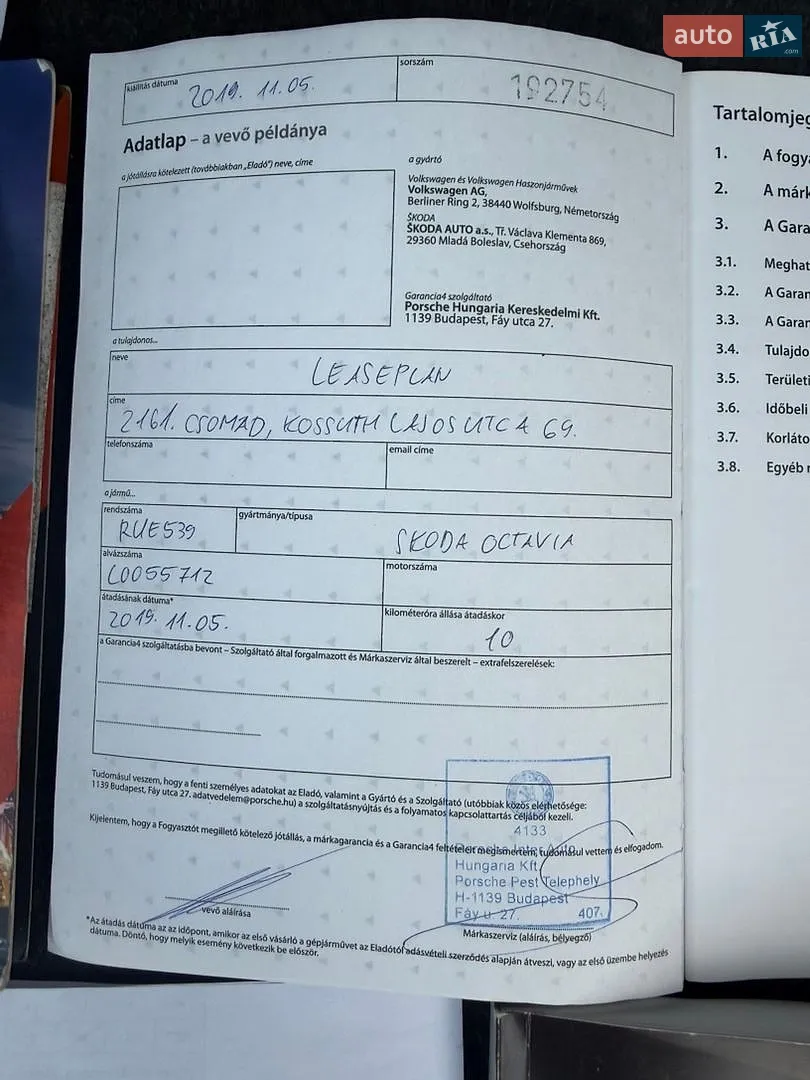 auto RIA.com
kiállítás dátuma
2019. 11.05.
sorszám
192754
Adatlap – a vevő példánya
a jótállásra kötelezett (továbbiakban „Eladó") neve, címe
a gyártó
Volkswagen és Volkswagen Haszonjárművek
Volkswagen AG,
Berliner Ring 2, 38440 Wolfsburg, Németország
ŠKODA
ŠKODA AUTO a.s., Tř. Václava Klementa 869,
29360 Mladá Boleslav, Csehország
Garancia4 szolgáltató
Porsche Hungaria Kereskedelmi Kft.
1139 Budapest, Fáy utca 27.
a tulajdonos...
neve
LEASEPLAN
címe
2161. CSOMAD, KOSSUTH LAJOS UTCA 69.
telefonszáma
email címe
a jármű...
rendszáma
RUE539
gyártmánya/típusa
SKODA OCTAVIA
alvázszáma
L0055712
motorszáma
átadásának dátuma*
2019. 11.05.
kilométeróra állása átadáskor
10
a Garancia4 szolgáltatásba bevont – Szolgáltató által forgalmazott és Márkaszerviz által beszerelt – extrafelszerelések:
Tudomásul veszem, hogy a fenti személyes adatokat az Eladó, valamint a Gyártó és a Szolgáltató (utóbbiak közös elérhetősége:
1139 Budapest, Fáy utca 27. adatvedelem@porsche.hu) a szolgáltatásnyújtás és a folyamatos kapcsolattartás céljából kezeli.
Kijelentem, hogy a Fogyasztót megillető kötelező jótállás, a márkagarancia és a Garancia4 feltételeit megismertem, tudomásul vettem és elfogadom.
4133
Hungaria Kft
Porsche Pest Telephely
H-1139 Budapest
Fáy u. 27. 407.
vevő aláírása
Márkaszerviz (aláírás, bélyegző)
*Az átadás dátuma az az időpont, amikor az első vásárló a gépjárművet az Eladótól adásvételi szerződés alapján átveszi, vagy az első üzembe helyezés
dátuma. Döntő, hogy melyik esemény következik be először.
Tartalomjeg
1. A fogya
2. A márk
3. A Gara
3.1. Meghat
3.2. A Garan
3.3. A Garan
3.4. Tulajdo
3.5. Területi
3.6. Időbeli
3.7. Korláto
3.8. Egyéb